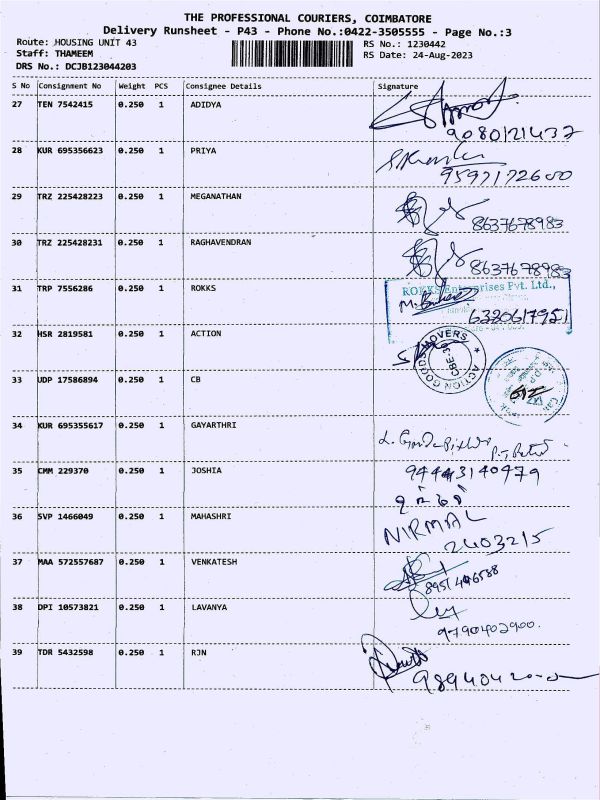 THE PROFESSIONAL COURIERS, COIMBATORE
Delivery Runsheet - P43 - Phone No.:0422-3505555 - Page No.:3
Route: HOUSING UNIT 43 RS No.: 1230442
Staff: THAMEEM RS Date: 24-Aug-2023
DRS No.: DCJB123044203
S No Consignment No Weight PCS Consignee Details Signature
27 TEN 7542415 0.250 1 ADIDYA
9080121437
28 KUR 695356623 0.250 1 PRIYA
9597172600
29 TRZ 225428223 0.250 1 MEGANATHAN
8637678983
30 TRZ 225428231 0.250 1 RAGHAVENDRAN
8637678983
31 TRP 7556286 0.250 1 ROKKS
ROKKS Enterprises Pvt. Ltd.,
6380617951
32 HSR 2819581 0.250 1 ACTION
ACTION GOODS MOVERS
33 UDP 17586894 0.250 1 CB
34 KUR 695355617 0.250 1 GAYARTHRI
35 CMM 229370 0.250 1 JOSHIA
94443140479
36 SVP 1466049 0.250 1 MAHASHRI
NIRMAL
2403215
37 MAA 572557687 0.250 1 VENKATESH
38 DPI 10573821 0.250 1 LAVANYA
9790402900.
39 TDR 5432598 0.250 1 RJN